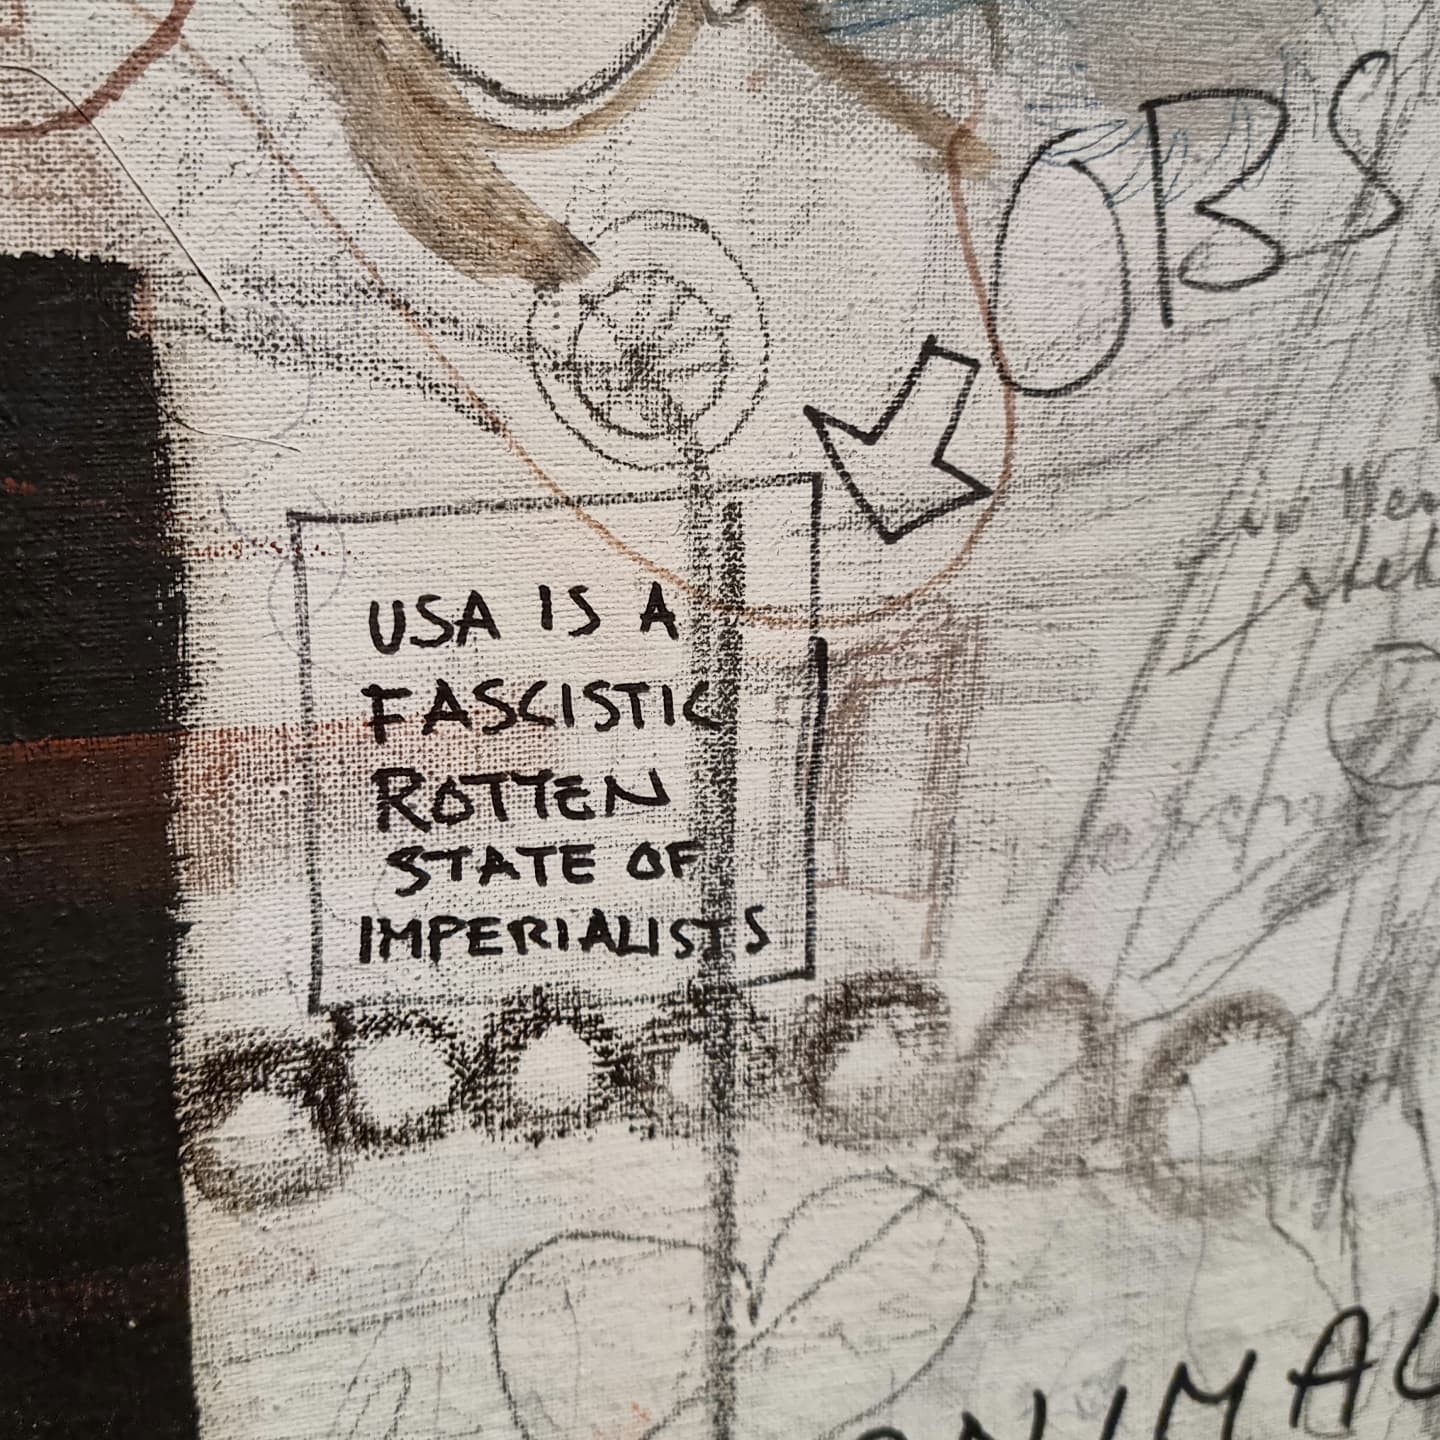 OBS
USA IS A
FASCISTIC
ROTTEN
STATE OF
IMPERIALISTS